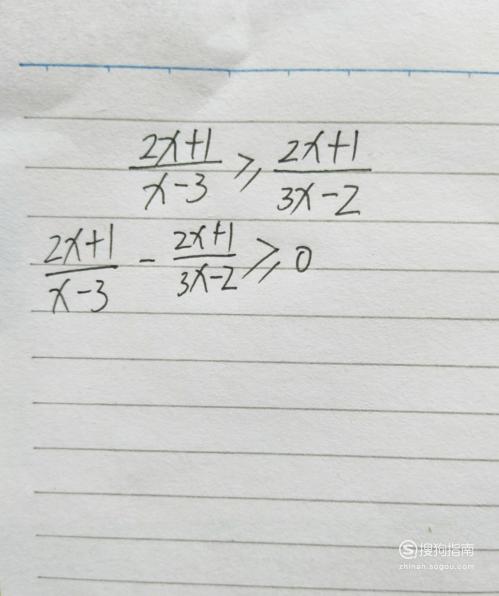 (2x+1)/(x-3) ⩾ (2x+1)/(3x-2)
(2x+1)/(x-3) - (2x+1)/(3x-2) ⩾ 0
搜狗指南
zhinan.sogou.com